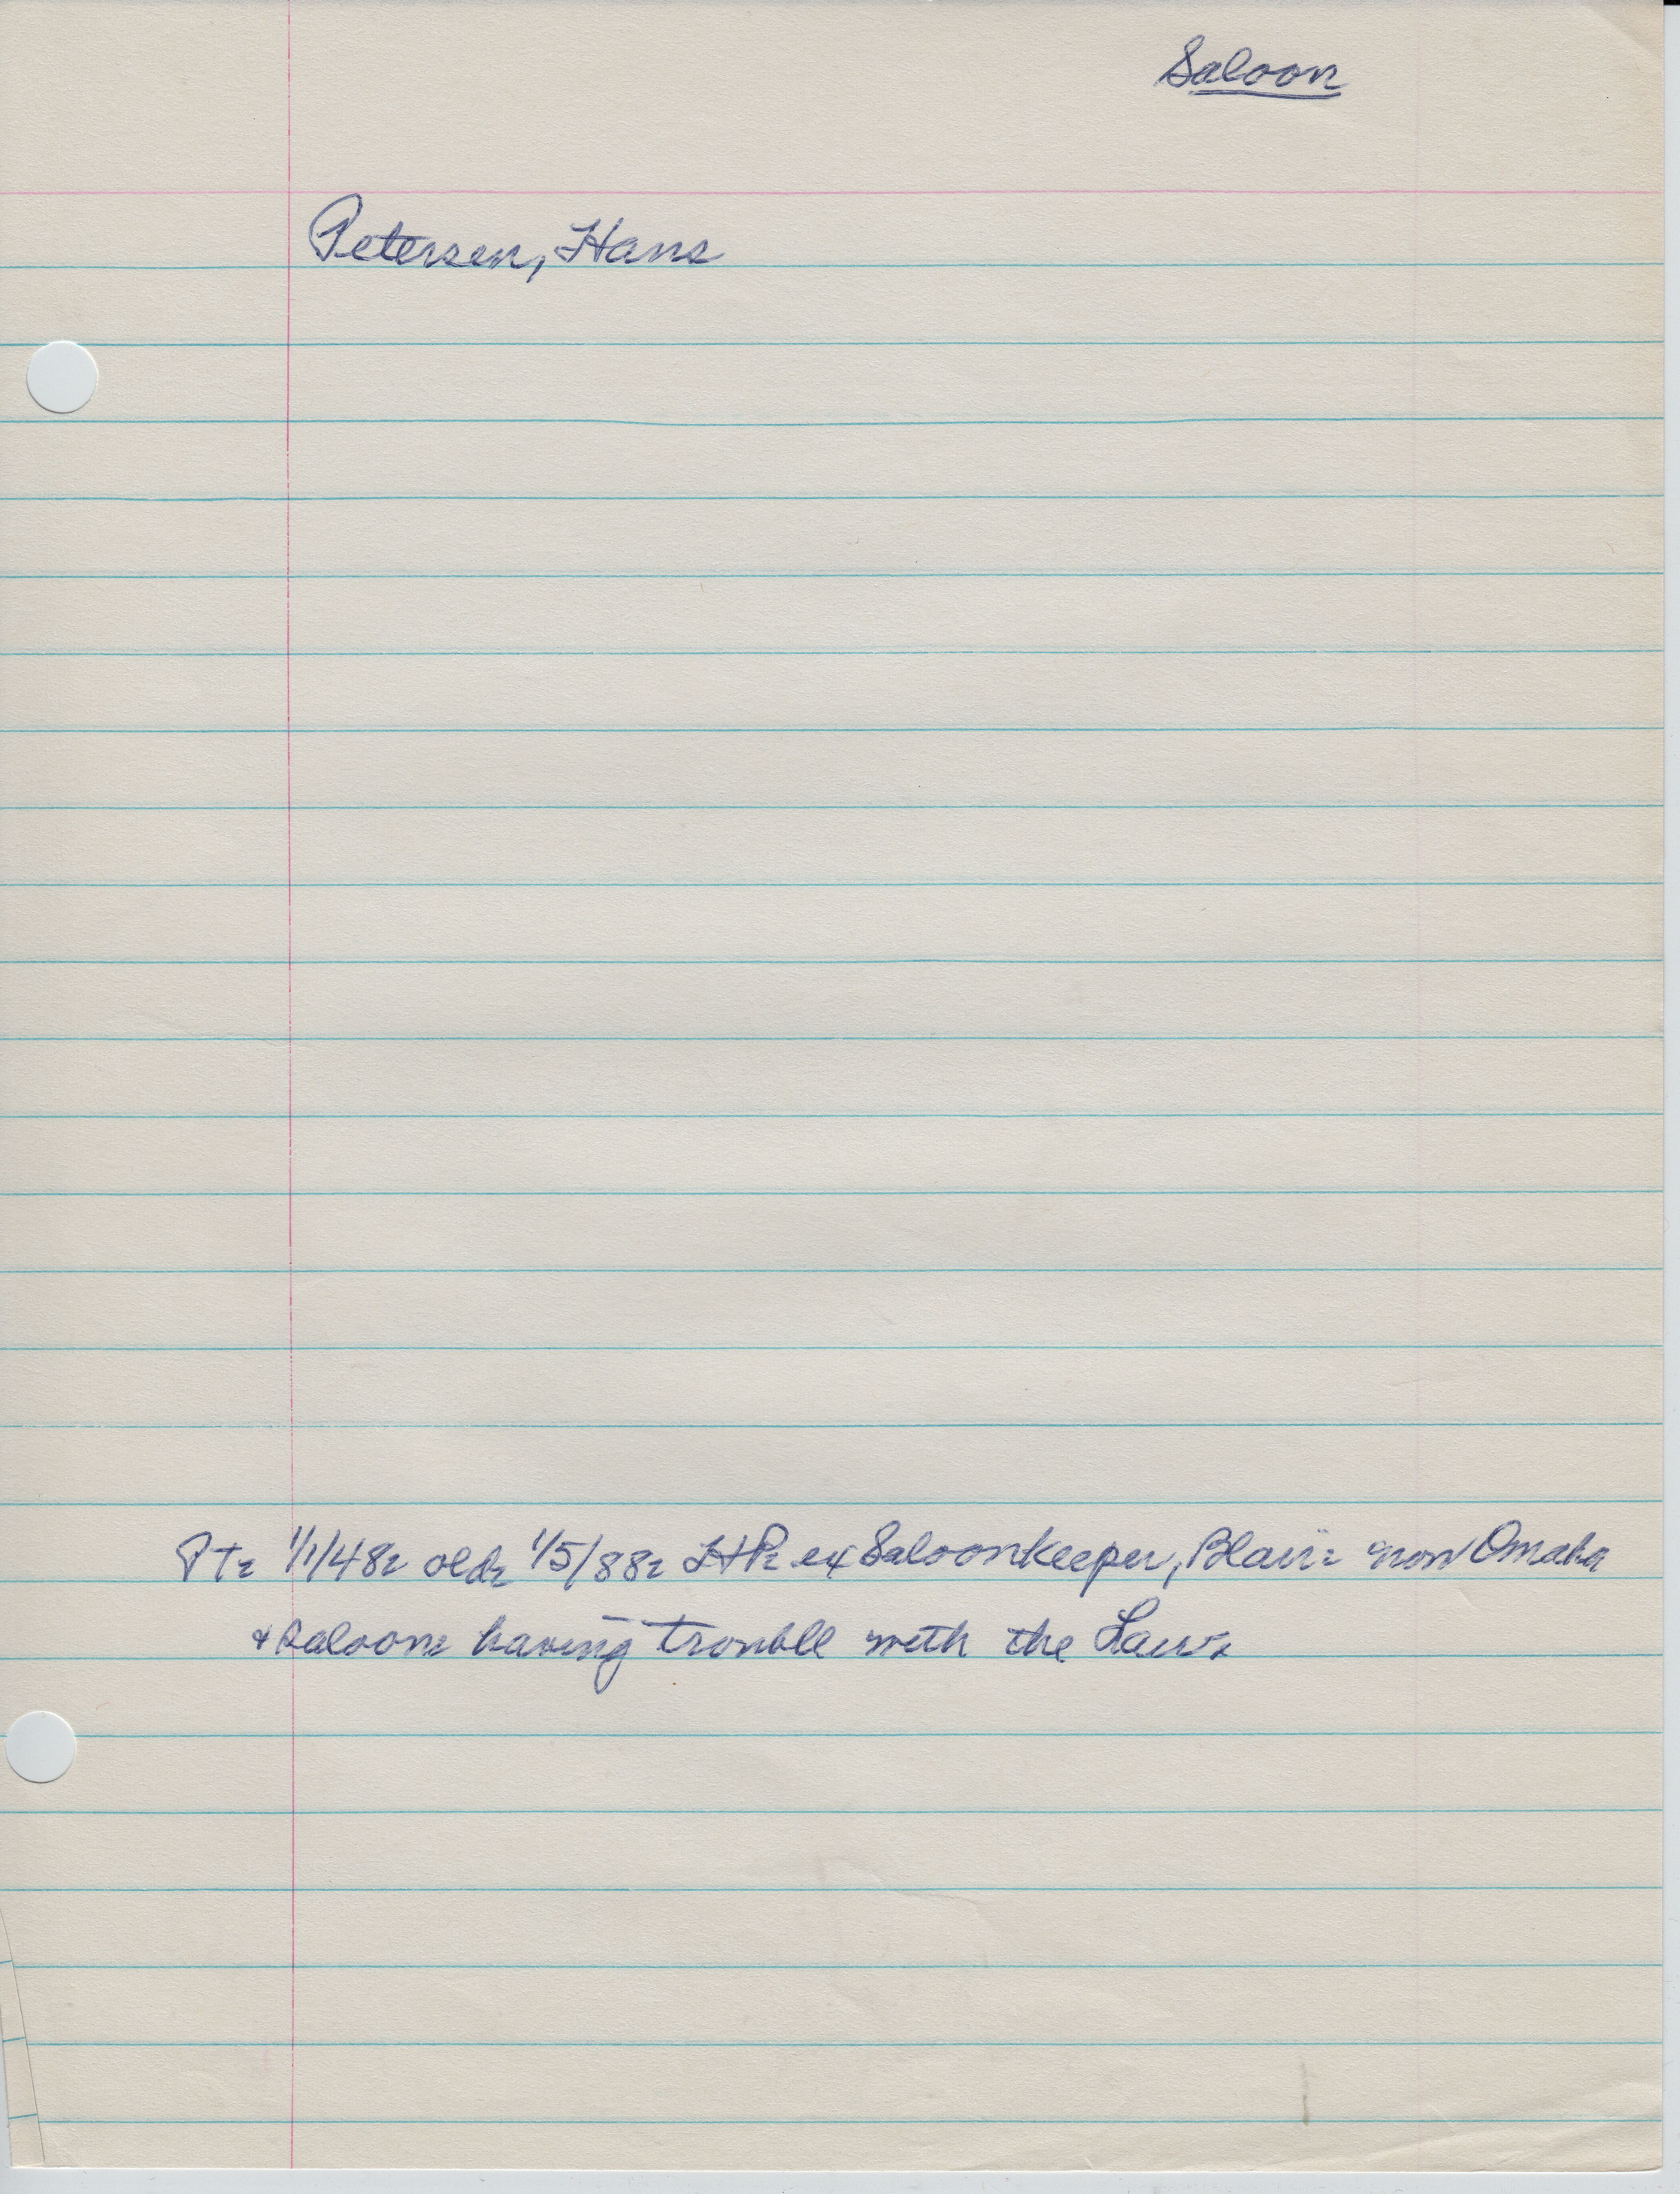 Saloon
Petersen, Hans
Pt: 1/1/48: old: 1/5/88: HP: ex Saloonkeeper, Blair: now Omaha
+ saloon: having trouble with the Law: